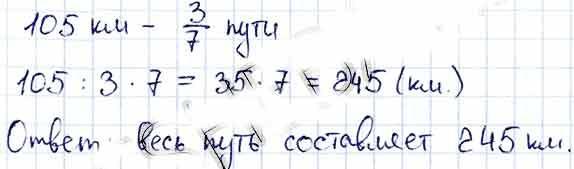 105 км - 3/7 пути
105 : 3 · 7 = 35 · 7 = 245 (км.)
Ответ весь путь составляет 245 км.